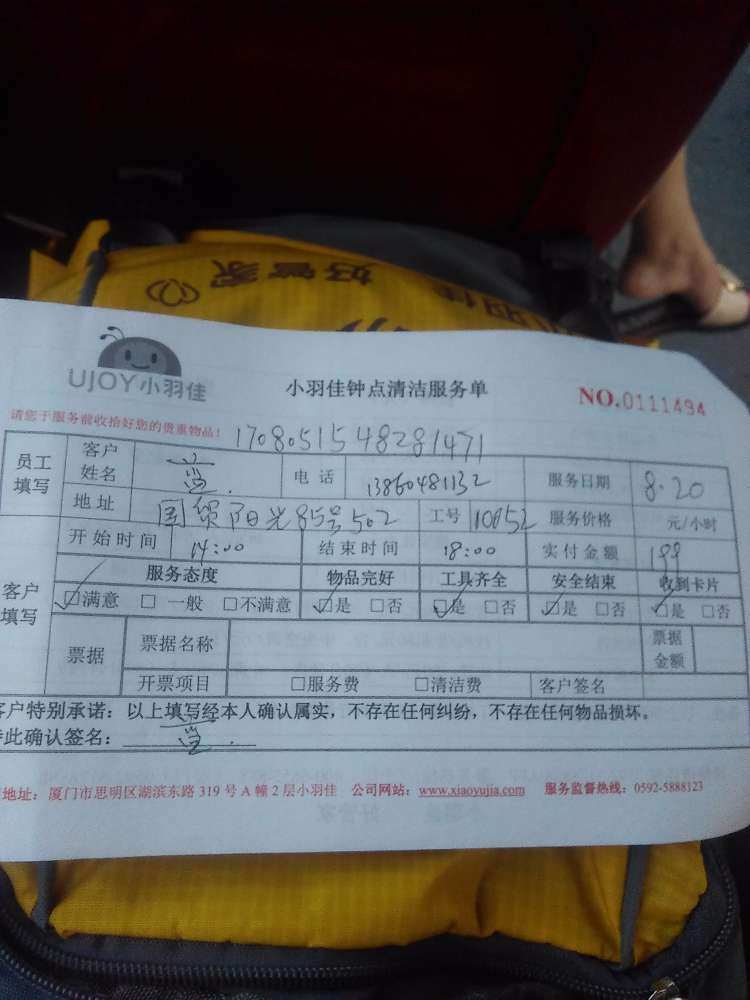 好管家
UJOY小羽佳
小羽佳钟点清洁服务单
NO.0111494
请您于服务前收拾好您的贵重物品!
1708051548281471
员工填写 客户姓名 电话 13860481132 服务日期 8.20
地址 国贸阳光85号502 工号 10652 服务价格 元/小时
客户填写 开始时间 14:00 结束时间 18:00 实付金额 199
服务态度 物品完好 工具齐全 安全结束 收到卡片
☑满意 □一般 □不满意 ☑是 □否 ☑是 □否 ☑是 □否 ☑是 □否
票据 票据名称 票据金额
开票项目 □服务费 □清洁费 客户签名
客户特别承诺:以上填写经本人确认属实,不存在任何纠纷,不存在任何物品损坏。
特此确认签名:
地址:厦门市思明区湖滨东路 319 号 A 幢 2 层小羽佳 公司网站:www.xiaoyujia.com 服务监督热线:0592-5888123